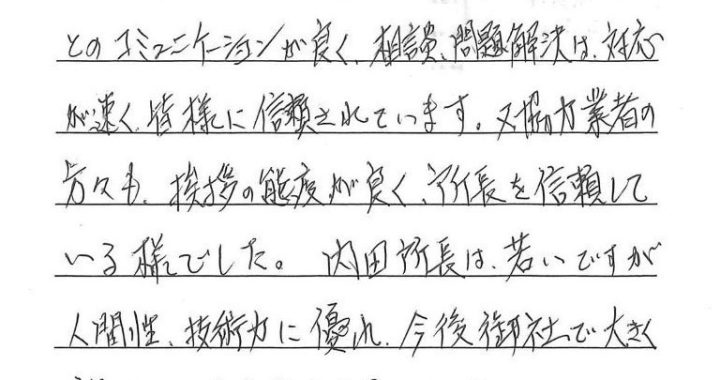 とのコミュニケーションが良く、相談、問題解決は、対応
が速く、皆様に信頼されています。又協力業者の
方々も、挨拶の態度が良く、所長を信頼して
いる様でした。 内田所長は、若いですが
人間性、技術力に優れ、今後御社で大きく